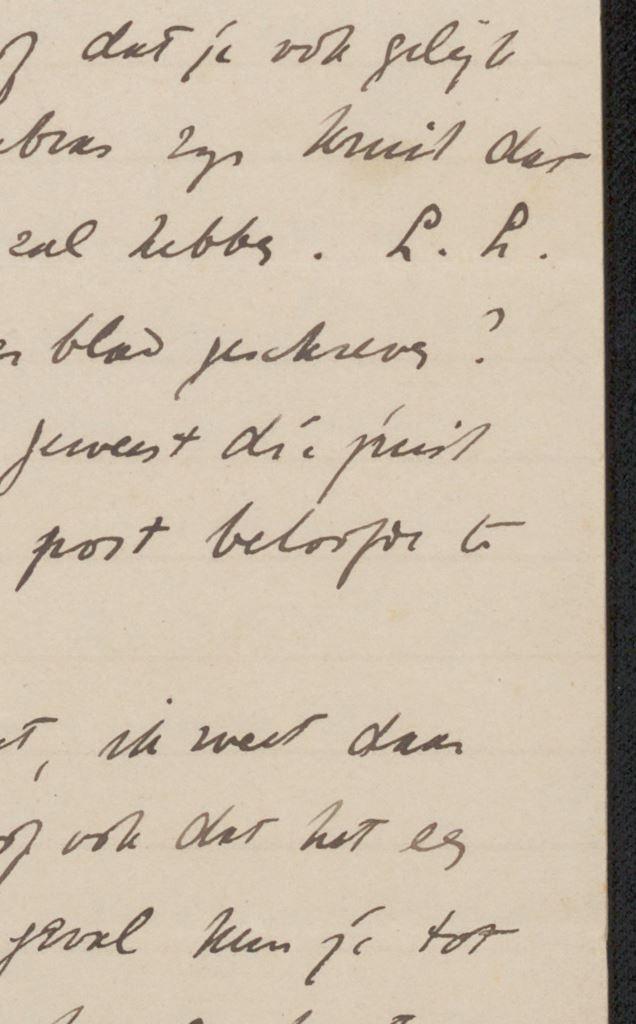 dat je ook gelijk
zijn kruit dat
zal hebben . L. L.
blad geschreven ?
geweest die juist
post beloofde te
, ik weet daar
ook dat het een
geval kun je tot